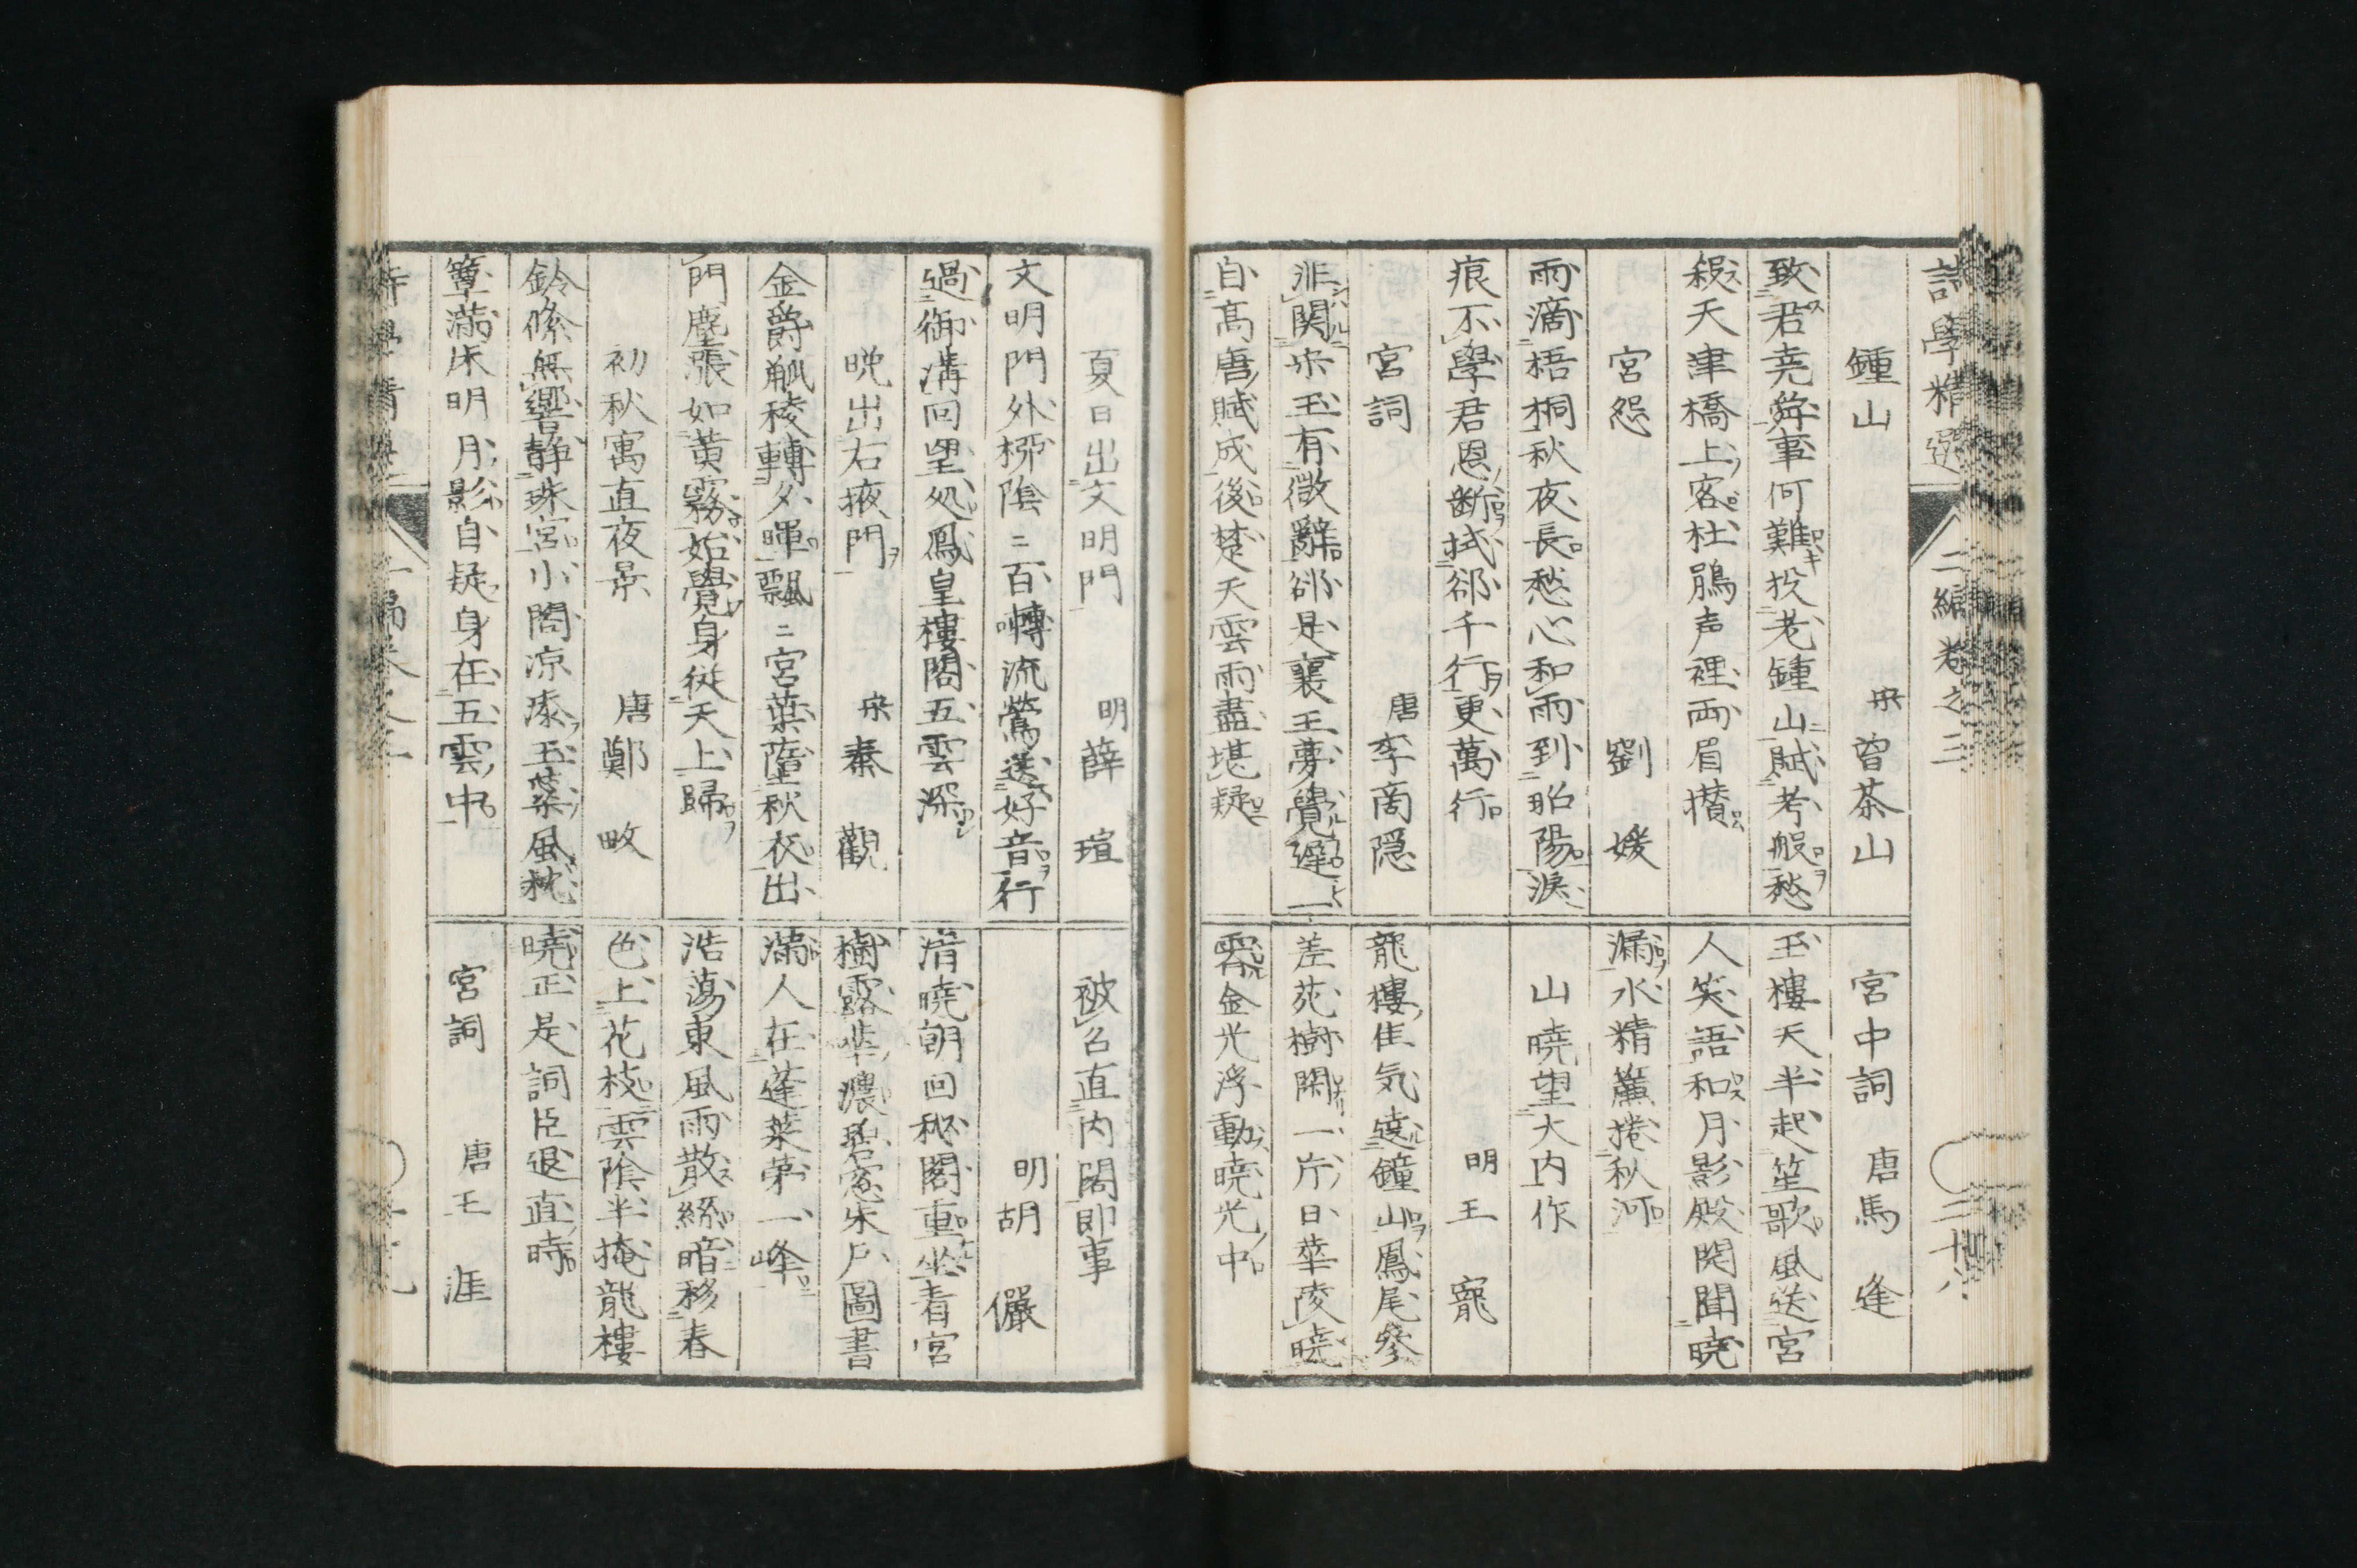 詩學精選 二編卷之三 三十八
鍾山 宋曽茶山
致君堯舜事何難投老鍾山賦考般愁
殺天津橋上客杜鵑声裡両眉攅
宮怨 劉媛
雨滴梧桐秋夜長愁心和雨到昭陽涙
痕不學君恩断拭郤千行更萬行
宮詞 唐李商隠
非関宋玉有微辭郤是襄王夢覺遲一
自髙唐賦成後楚天雲雨盡堪疑
宮中詞 唐馬逢
玉樓天半起笙歌風送宮
人笑語和月影殿開聞曉
漏水精簾捲秋河
山曉望大内作
明王寵
龍樓佳気遶鐘山鳳尾參
差苑樹閑一片日華陵曉
霽金光浮動曉光中
夏日出文明門 明薛瑄
文明門外栁陰ニ百囀流鶯送好音行
過御溝回望処鳳皇樓閣五雲深
晩出右掖門 宋秦觀
金爵觚稜轉夕暉飄ニ宮葉墮秋衣出
門塵漲如黄霧始覺身従天上歸
初秋寓直夜景 唐鄭畋
鈴絛無響静珠宮小閣凉添玉蘂風枕
簟滿床明月影自疑身在五雲中
被召直内閣即事
明胡儼
清曉朝回秘閣重坐看宮
樹露華濃碧窓朱戸圖書
滿人在蓬莱第一峰
浩蕩東風雨散絲暗移春
色上花枝雲陰半掩龍樓
曉正是詞臣退直時
宮詞 唐王涯